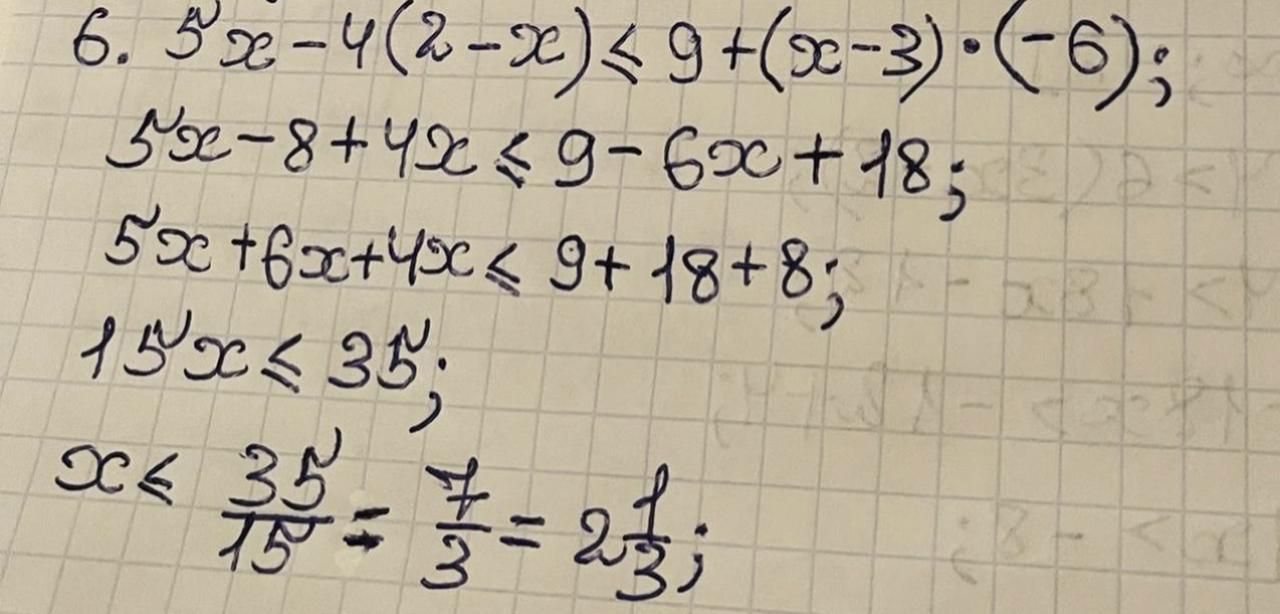 6. 5x - 4(2 - x) ⩽ 9 + (x - 3) · (-6);
5x - 8 + 4x ⩽ 9 - 6x + 18;
5x + 6x + 4x ⩽ 9 + 18 + 8;
15x ⩽ 35;
x ⩽ 35/15 = 7/3 = 2 1/3;